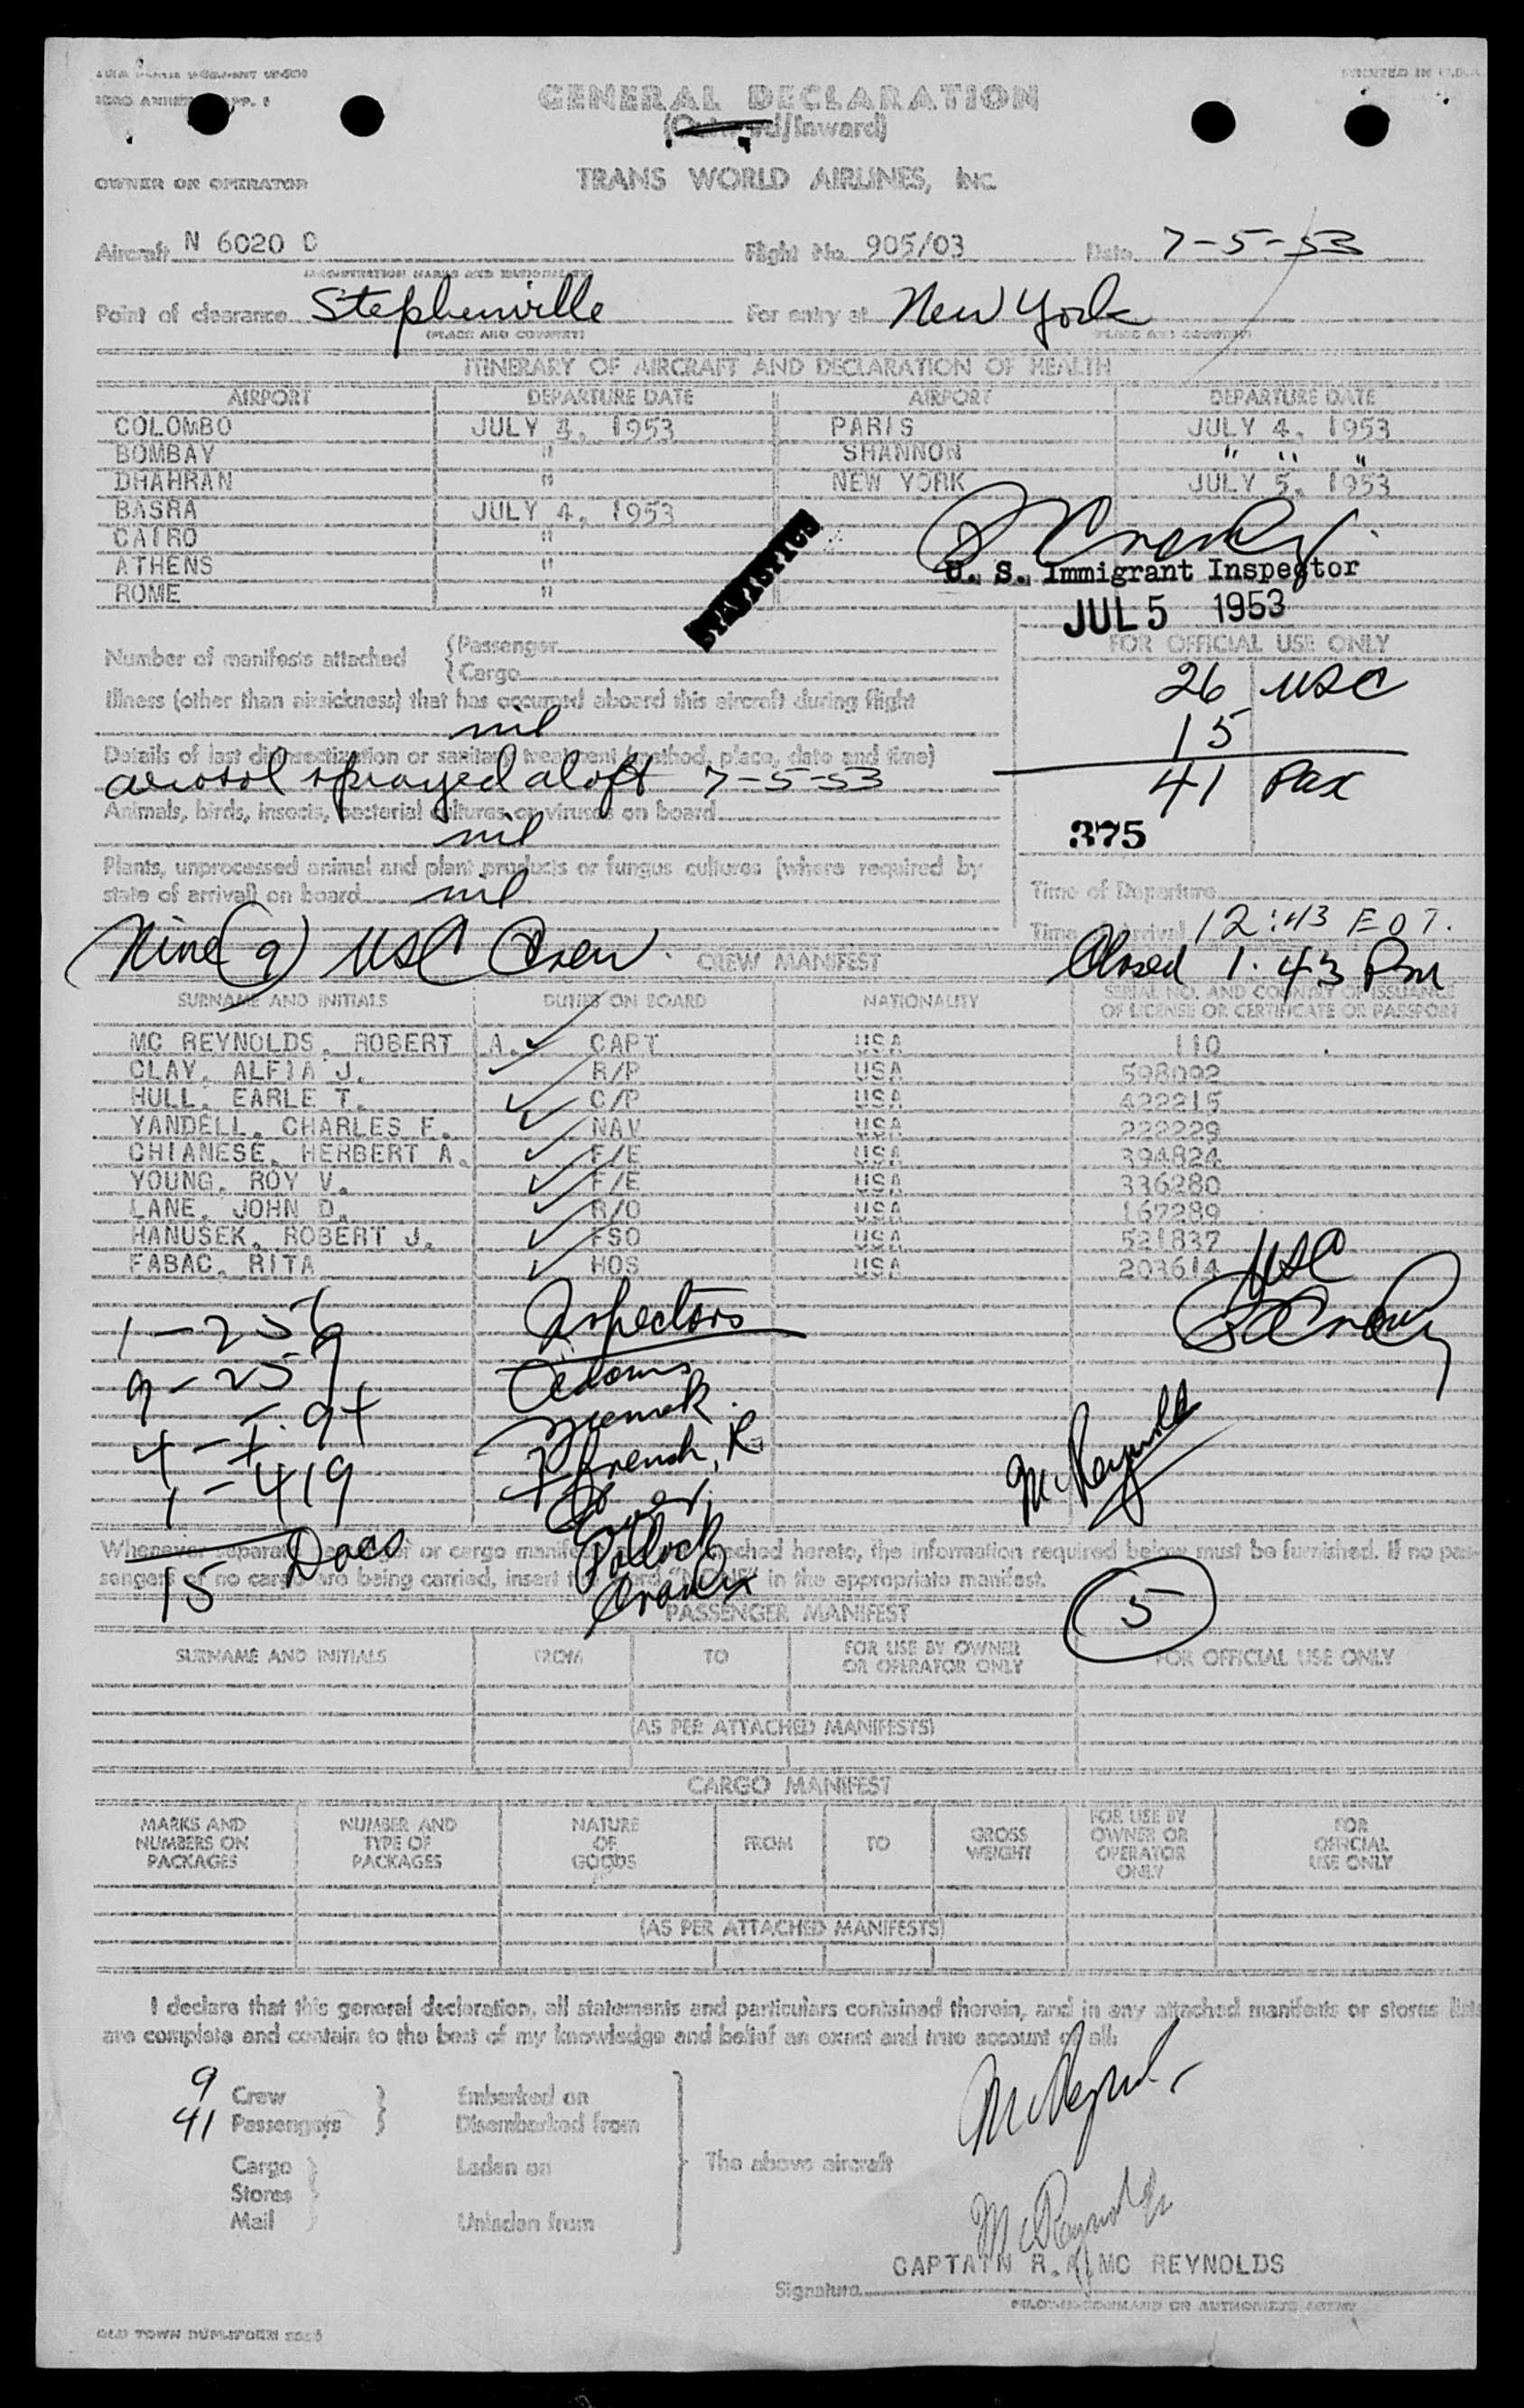 PRINTED IN U.S.A.
GENERAL DECLARATION
(Outward/Inward)
OWNER OR OPERATOR TRANS WORLD AIRLINES, INC.
Aircraft N 6020 C Flight No. 905/03 Date 7-5-53
(REGISTRATION MARKS AND NATIONALITY)
Point of clearance Stephenville For entry at New York
(PLACE AND COUNTRY) (PLACE AND COUNTRY)
ITINERARY OF AIRCRAFT AND DECLARATION OF HEALTH
AIRPORT DEPARTURE DATE AIRPORT DEPARTURE DATE
COLOMBO JULY 3, 1953 PARIS JULY 4, 1953
BOMBAY " SHANNON " " "
DHAHRAN " NEW YORK JULY 5, 1953
BASRA JULY 4, 1953
CAIRO "
ATHENS "
ROME "
STATISTICS
U. S. Immigrant Inspector
JUL 5 1953
FOR OFFICIAL USE ONLY
Number of manifests attached {Passenger
{Cargo
26 USC
15
41 Pax
375
Illness (other than airsickness) that has occurred aboard this aircraft during flight
nil
Details of last disinsectization or sanitary treatment (method, place, date and time)
aerosol sprayed aloft 7-5-53
Animals, birds, insects, bacterial cultures or viruses on board
nil
Plants, unprocessed animal and plant products or fungus cultures (where required by
state of arrival) on board nil
Time of Departure
Time of Arrival 12:43 EDT.
Nine (9) USC Crew. CREW MANIFEST Closed 1:43 Pm
SURNAME AND INITIALS DUTIES ON BOARD NATIONALITY SERIAL NO. AND COUNTRY OF ISSUANCE
OF LICENSE OR CERTIFICATE OR PASSPORT
MC REYNOLDS, ROBERT A. CAPT USA 110
CLAY, ALFIA J. R/P USA 598092
HULL, EARLE T. C/P USA 422215
YANDELL, CHARLES E. NAV USA 222229
CHIANESE, HERBERT A. F/E USA 394824
YOUNG, ROY V. F/E USA 336280
LANE, JOHN D. R/O USA 167289
HANUSEK, ROBERT J. FSO USA 521837
FABAC, RITA HOS USA 203614
USC
1 - 256 Inspectors
9 - 257 Adams
4 -
1 - 419 French, R.
15 Docs Pollock
McReynolds
Whenever separate passenger or cargo manifests are attached hereto, the information required below must be furnished. If no pas-
sengers or no cargo are being carried, insert the word "NONE" in the appropriate manifest.
5
PASSENGER MANIFEST
SURNAME AND INITIALS FROM TO FOR USE BY OWNER OR OPERATOR ONLY FOR OFFICIAL USE ONLY
(AS PER ATTACHED MANIFESTS)
CARGO MANIFEST
MARKS AND NUMBERS ON PACKAGES NUMBER AND TYPE OF PACKAGES NATURE OF GOODS FROM TO GROSS WEIGHT FOR USE BY OWNER OR OPERATOR ONLY FOR OFFICIAL USE ONLY
(AS PER ATTACHED MANIFESTS)
I declare that this general declaration, all statements and particulars contained therein, and in any attached manifests or stores lists
are complete and contain to the best of my knowledge and belief an exact and true account of all:
9 Crew } Embarked on
41 Passengers } Disembarked from
Cargo } Laden on The above aircraft
Stores
Mail } Unladen from
McReynolds
McReynolds
CAPTAIN R.A. MC REYNOLDS
Signature
PILOT-IN-COMMAND OR AUTHORIZED AGENT